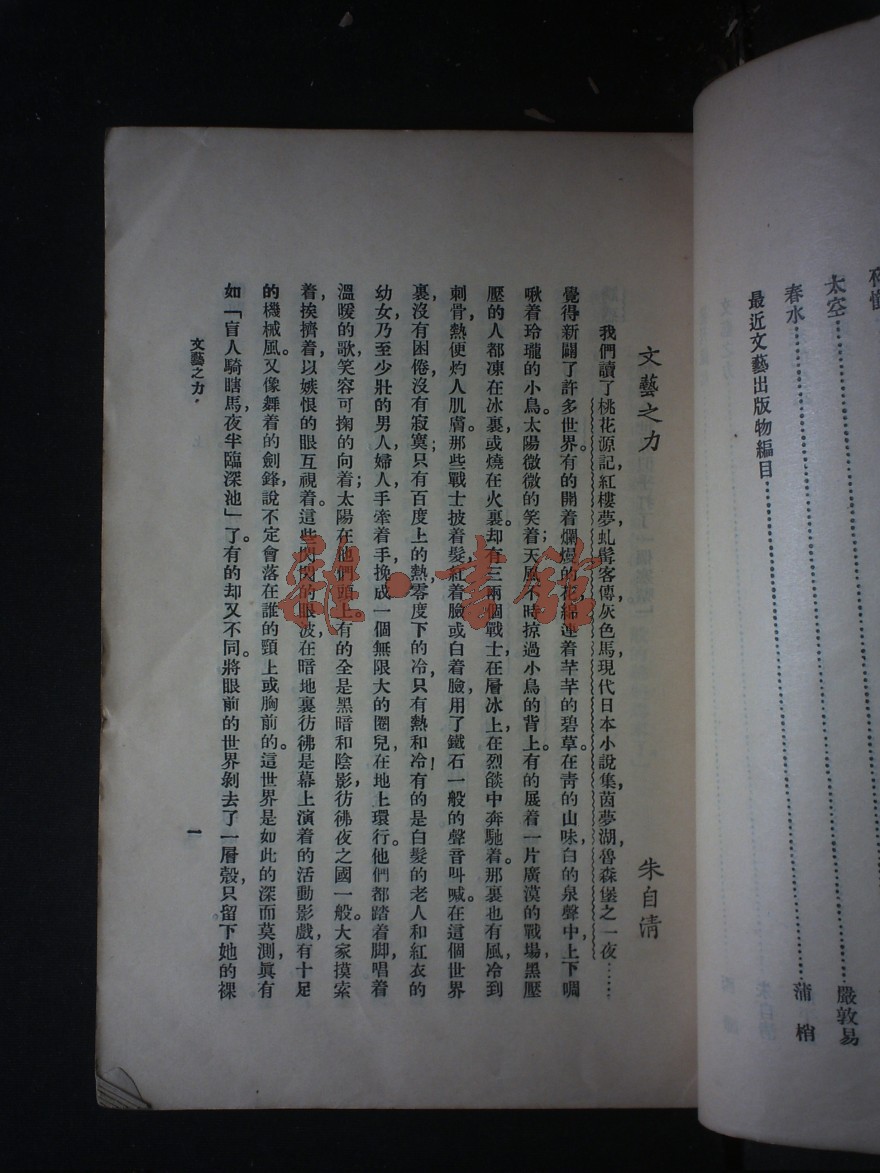 太空
春水……嚴敦易
最近文藝出版物編目……蒲梢
文藝之力
朱自清
我們讀了桃花源記,紅樓夢,虬髯客傳,灰色馬,現代日本小說集,茵夢湖,魯森堡之一夜……
覺得新闢了許多世界。有的開着爛熳的花,綿連着芊芊的碧草。在靑的山味,白的泉聲中,上下啁
啾着玲瓏的小鳥。太陽微微的笑着;天風不時掠過小鳥的背上。有的展着一片廣漠的戰場,黑壓
壓的人都凍在冰裏,或燒在火裏。却有三兩個戰士,在層冰上,在烈燄中奔馳着。那裏也有風,冷到
刺骨,熱便灼人肌膚。那些戰士披着髮,紅着臉,或白着臉,用了鐵石一般的聲音叫喊。在這個世界
裏,沒有困倦,沒有寂寞;只有百度上的熱,零度下的冷,只有熱和冷!有的是白髮的老人和紅衣的
幼女,乃至少壯的男人,婦人,手牽着手,挽成一個無限大的圈兒,在地上環行。他們都踏着脚,唱着
溫暖的歌,笑容可掬的向着;太陽在他們頭上。有的全是黑暗和陰影,彷彿夜之國一般。大家摸索
着,挨擠着,以嫉恨的眼互視着。這些閃閃的眼波,在暗地裏彷彿是幕上演着的活動影戲,有十足
的機械風。又像舞着的劍鋒,說不定會落在誰的頸上或胸前的。這世界是如此的深而莫測,眞有
如「盲人騎瞎馬,夜半臨深池」了。有的却又不同。將眼前的世界剝去了一層殼,只留下她的裸
文藝之力
一
雜·書館